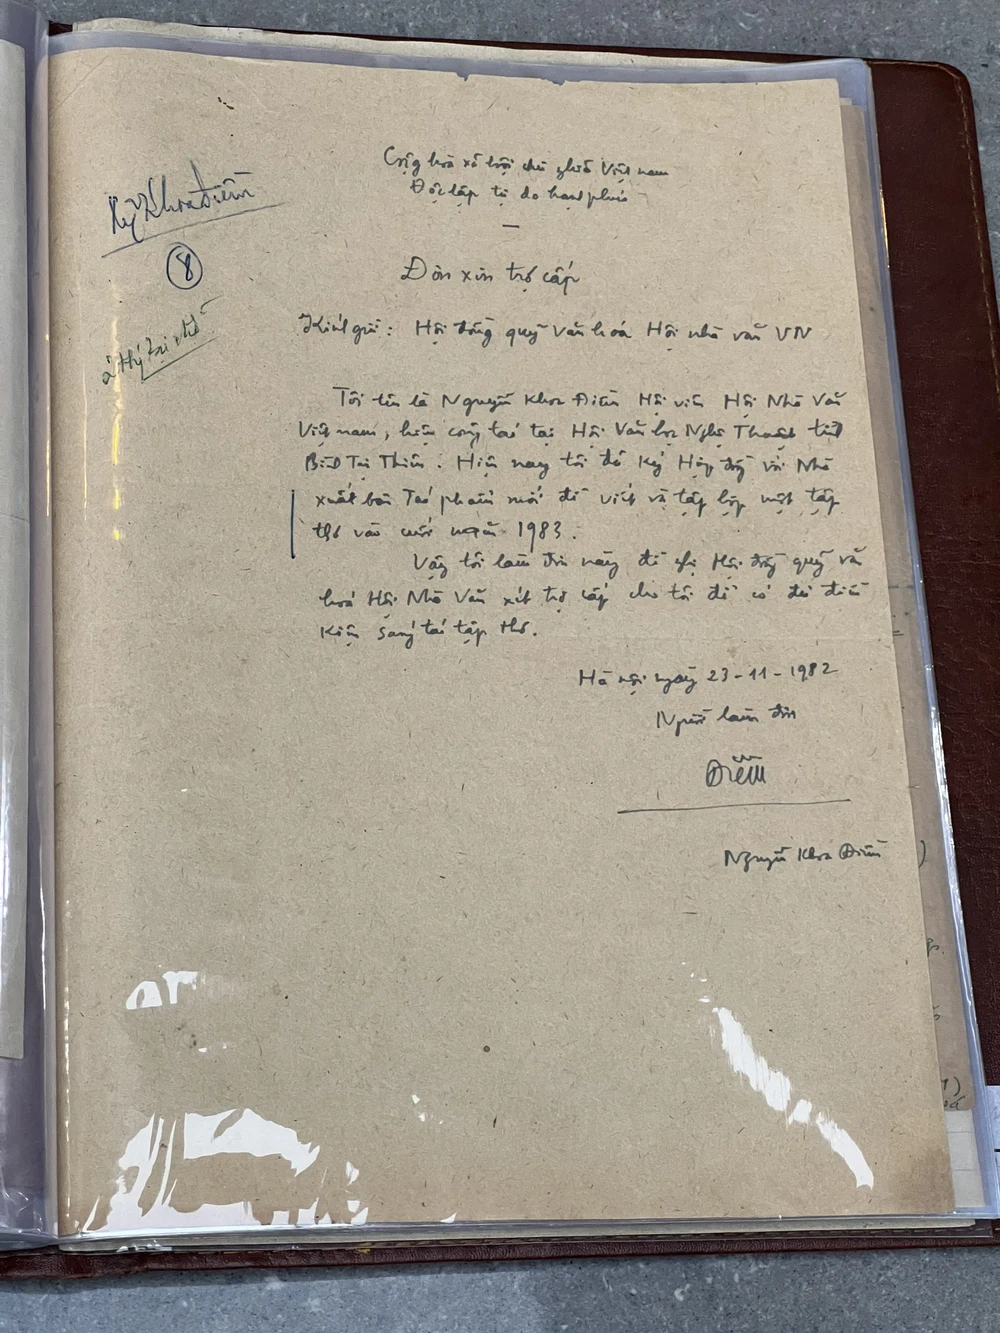 Cộng hoà xã hội chủ nghĩa Việt nam
Độc lập tự do hạnh phúc
Khoa Điềm
8
Đơn xin trợ cấp
Kính gửi: Hội đồng quỹ Văn hoá Hội nhà văn VN
Tôi tên là Nguyễn Khoa Điềm Hội viên Hội Nhà Văn
Việt nam, hiện công tác tại Hội Văn học Nghệ Thuật tỉnh
Bình Trị Thiên. Hiện nay tôi đã Ký Hợp đồng với Nhà
xuất bản Tác phẩm mới để viết và tập hợp một tập
thơ vào cuối năm 1983.
Vậy tôi làm đơn này đề nghị Hội đồng quỹ văn
hoá Hội Nhà Văn xét trợ cấp cho tôi để có đủ điều
kiện sáng tác tập thơ.
Hà nội ngày 23-11-1982
Người làm đơn
Điềm
Nguyễn Khoa Điềm